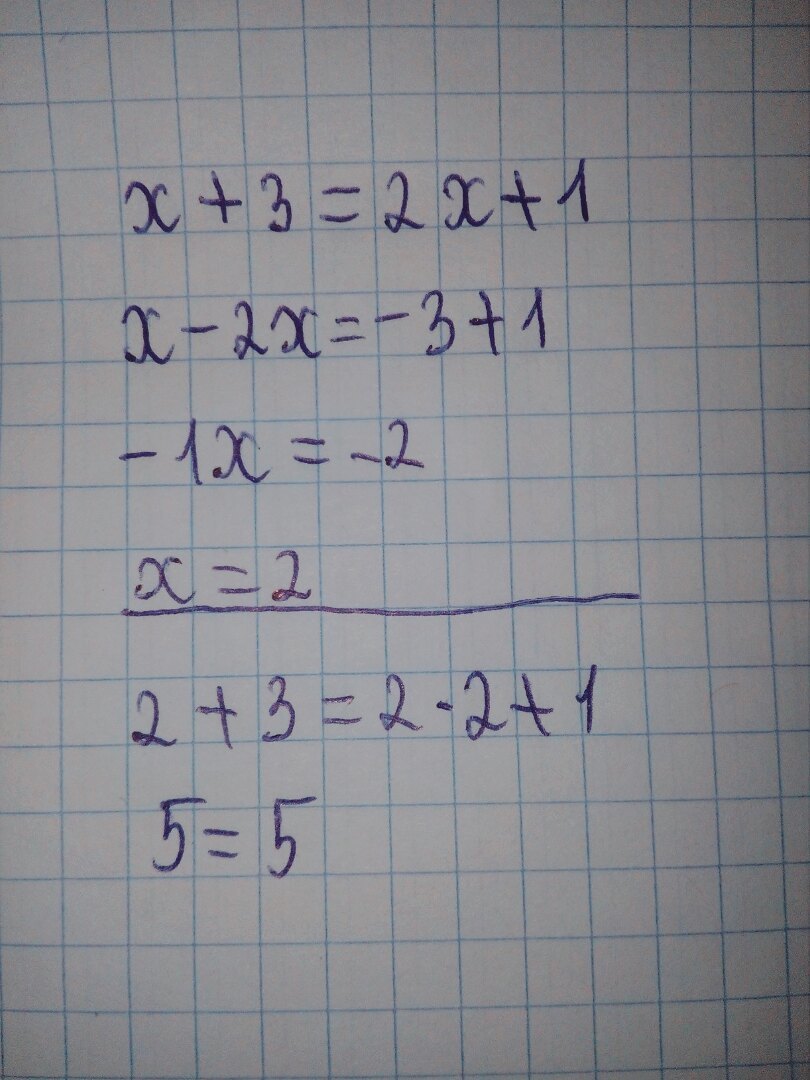 x + 3 = 2x + 1
x - 2x = -3 + 1
-1x = -2
x = 2
2 + 3 = 2 · 2 + 1
5 = 5